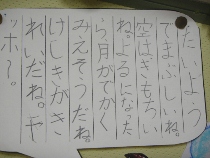 たいよう
でまぶしいね。
空はきもちい
ね。よるになった
ら月がでかく
みえそうだね。
けしきがき
れいだね。ヤ
ッホー。